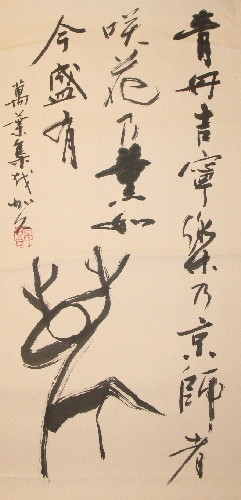 青丹吉寧樂乃京師者
咲花乃薫如
今盛有
萬葉集